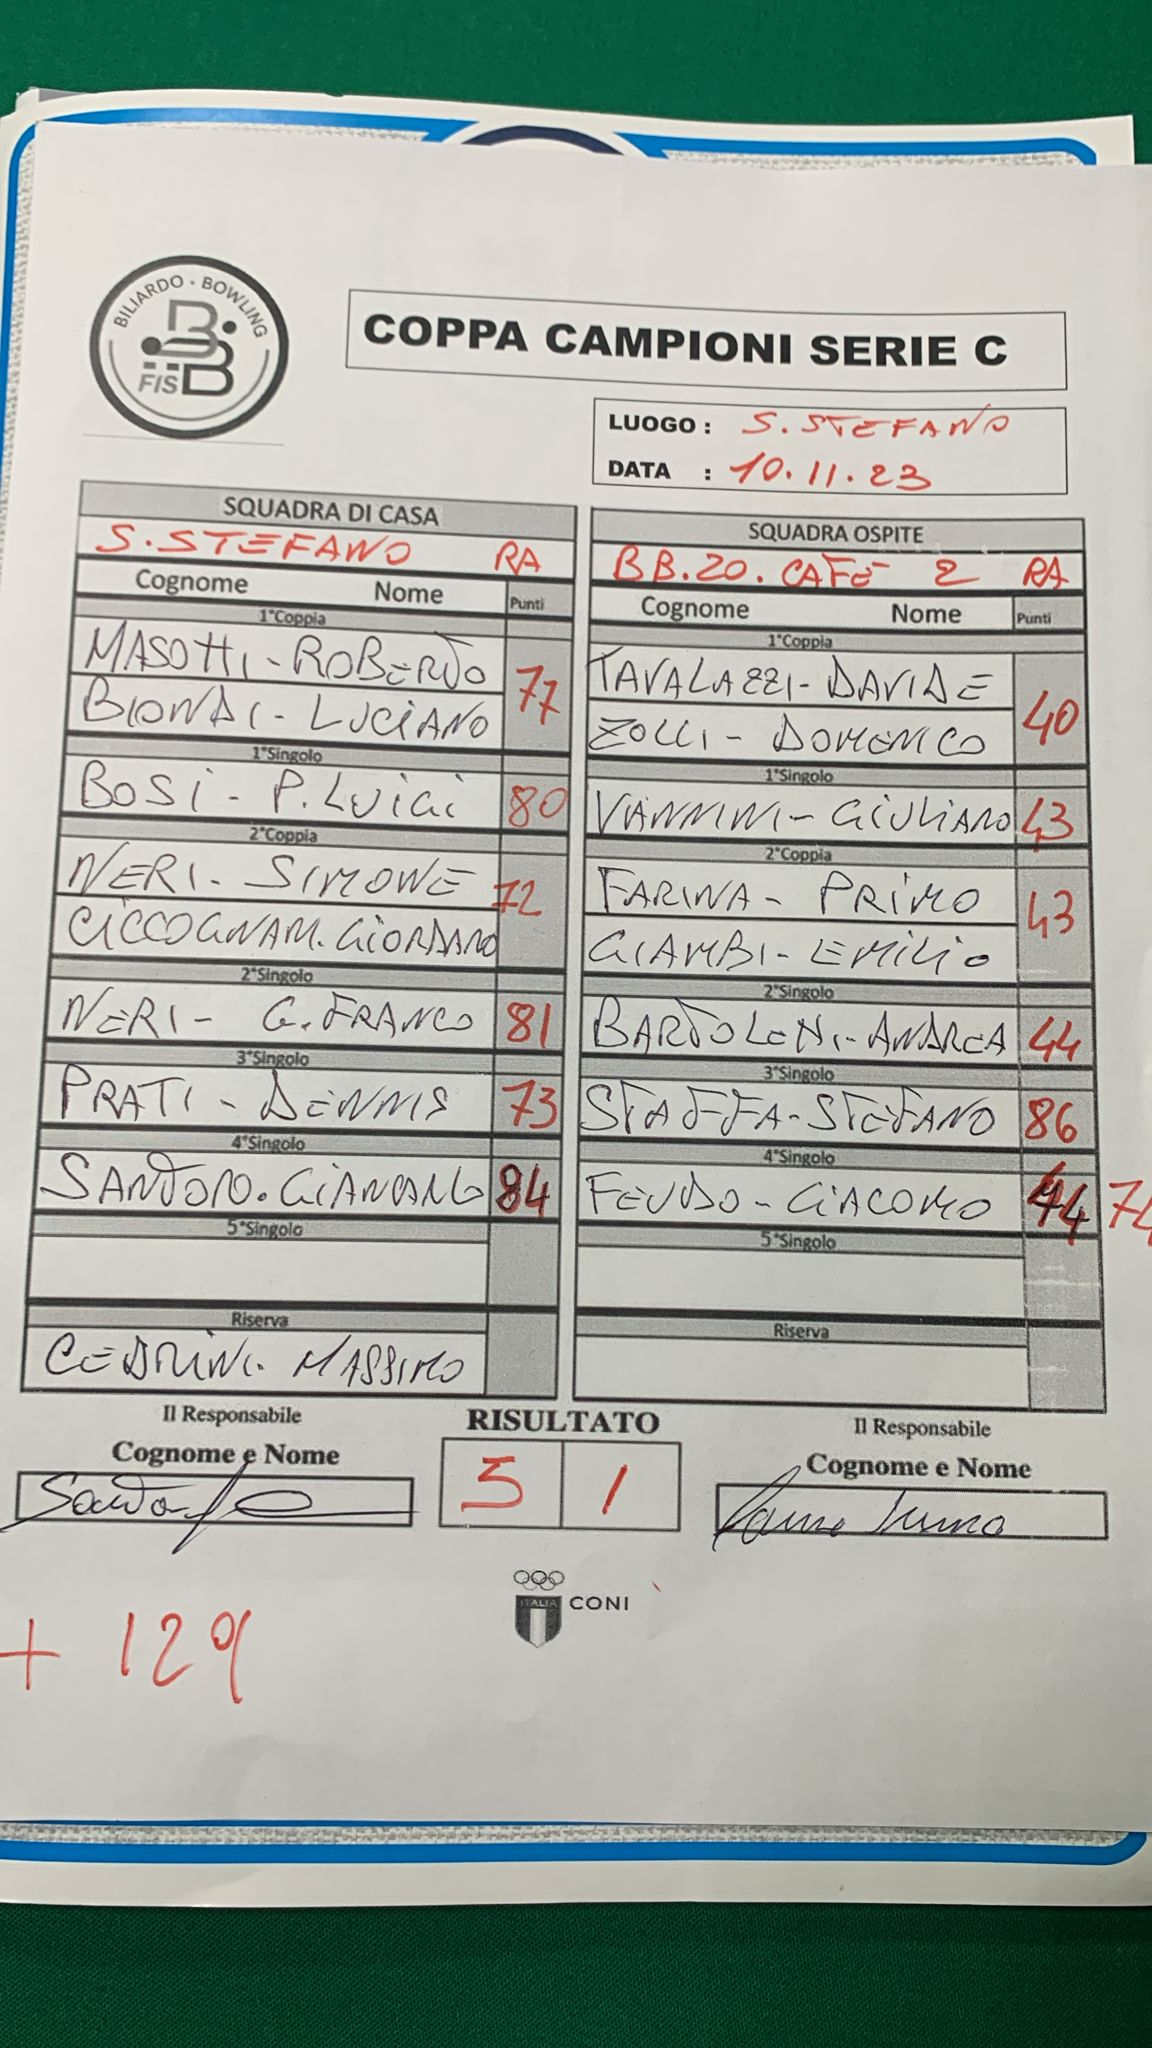 BILIARDO - BOWLING
FISBB
COPPA CAMPIONI SERIE C
LUOGO : S. STEFANO
DATA : 10.11.23
SQUADRA DI CASA
S. STEFANO RA
Cognome Nome Punti
1°Coppia
MASOTTI - ROBERTO
77
BIONDI - LUCIANO
1°Singolo
BOSI - P. LUIGI 80
2°Coppia
NERI - SIMONE
72
CICCOGNAM. GIORDANO
2°Singolo
NERI - G. FRANCO 81
3°Singolo
PRATI - DENNIS 73
4°Singolo
SANTORO. 84
5°Singolo
Riserva
CEDRINI. MASSIMO
SQUADRA OSPITE
BB.20. CAFE 2 RA
Cognome Nome Punti
1°Coppia
TAVALAZZI - DAVIDE
40
ZOLLI - DOMENICO
1°Singolo
VANNINI - GIULIANO 43
2°Coppia
FARINA - PRIMO
43
GIAMBI - EMILIO
2°Singolo
ANDREA 44
3°Singolo
STAFFA - STEFANO 86
4°Singolo
FEUDO - GIACOMO 74
5°Singolo
Riserva
Il Responsabile
Cognome e Nome
RISULTATO
5 1
Il Responsabile
Cognome e Nome
ITALIA
CONI
+ 129